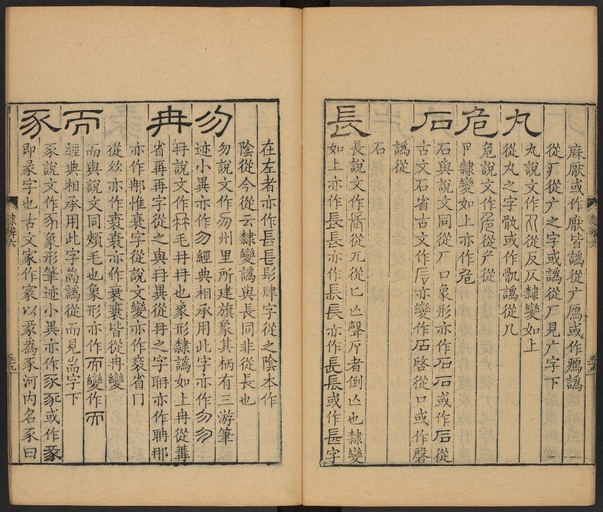 麻厭或作厭皆譌從广鴈或作鴈譌
從厂從广之字或譌從厂見广字下
丸
丸說文作從反仄隸變如上
從丸之字骫或作骩譌從几
危
危說文作從厃從
卪隸變如上亦作危
石
石與說文同從厂口象形亦作石石或作石從
古文石省古文作亦變作石啓從口或作磬
譌從
石
長
長說文作從兀從匕亾聲者倒亾也隸變
如上亦作長長亦作長長亦作長長或作镸字
在左者亦作镸镸髟肆字從之陰本作
陰從今從云隸變譌與長同非從長也
勿
勿說文作勿州里所建旗象其柄有三游筆
迹小異亦作勿經典相承用此字亦作勿勿
冉
冄說文作毛冄冄也象形隸譌如上冉從冓
省再再字從之與冄異從冄之字聃亦作聃那
亦作惟衰字從說文變亦作衰省冂
從亦作衰衰亦作衰衰皆從冉變
而
而與說文同頰毛也象形亦作而變作而
經典相承用此字耑譌從而見耑字下
豕
豕說文作豕象形筆迹小異亦作豕豕或作豕
即彖字也古文家作以為豕河內名豕曰